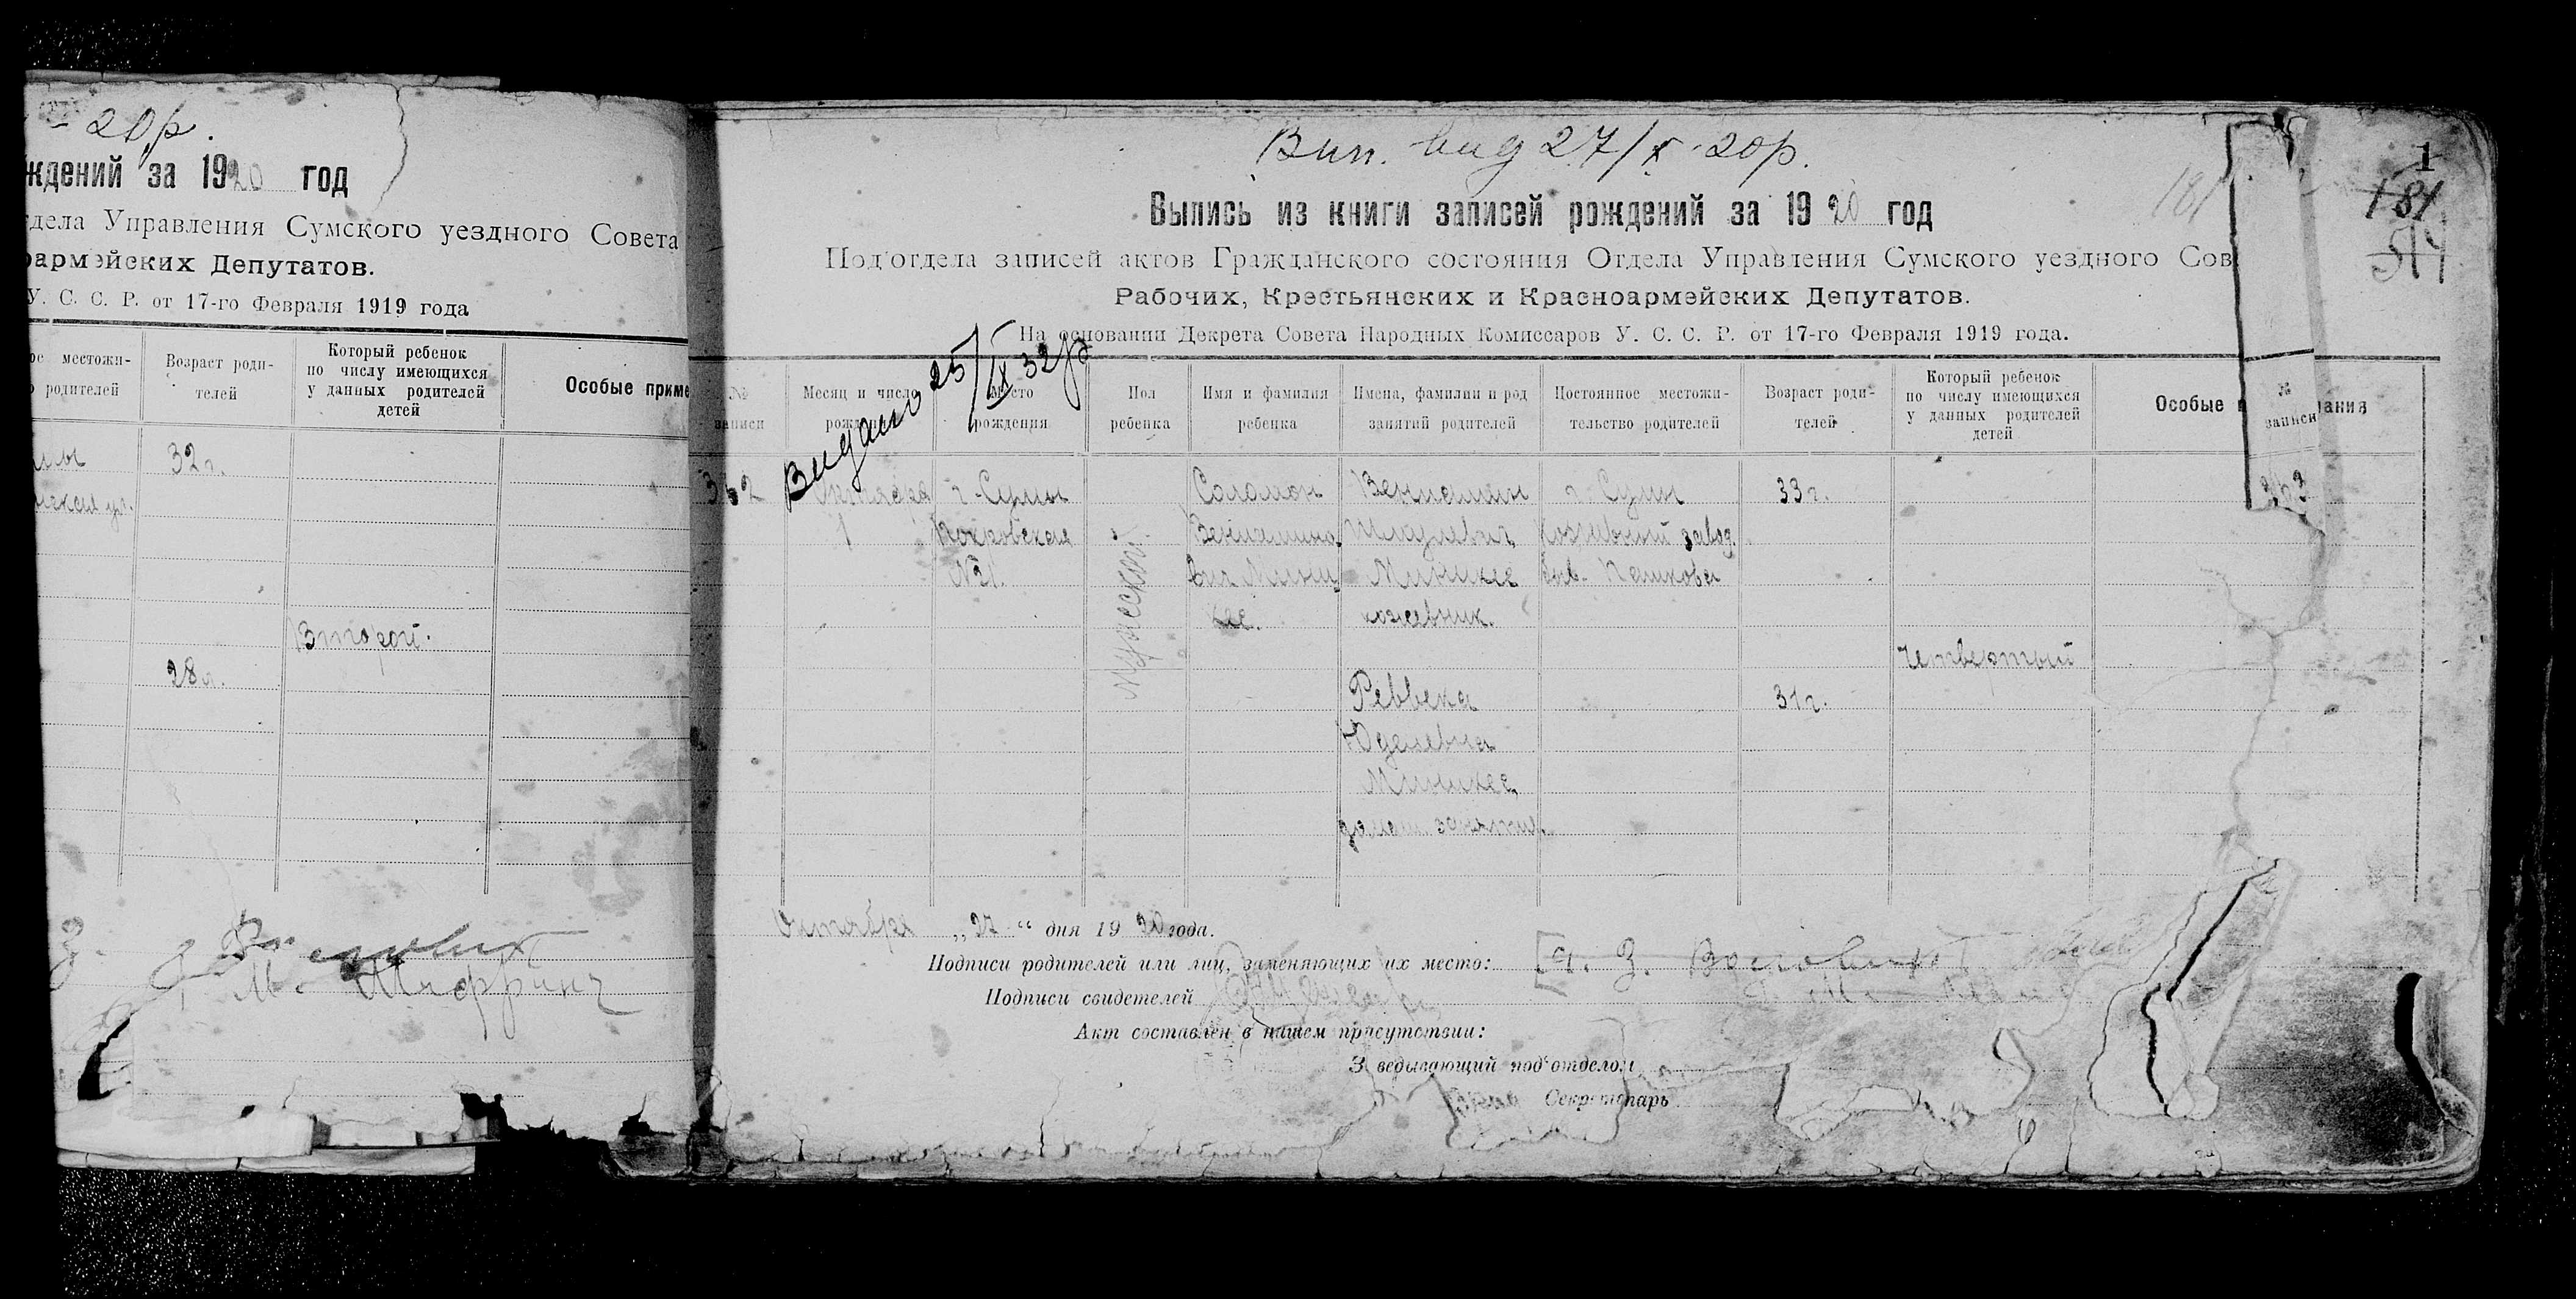 20р.
ждений за 1920 год
тдела Управления Сумского уездного Совета
оармейских Депутатов.
У. С. С. Р. от 17-го Февраля 1919 года
ое местожи-
о родителей
Возраст роди-
телей
Который ребенок
по числу имеющихся
у данных родителей
детей
Особые приме
32 г.
Второй.
28 л.
З.
М. Шифрин
Вип. вид 27/X 20р.
Выпись из книги записей рождений за 1920 год
Под'отдела записей актов Гражданского состояния Отдела Управления Сумского уездного Сов
Рабочих, Крестьянских и Красноармейских Депутатов.
На основании Декрета Совета Народных Комиссаров У. С. С. Р. от 17-го Февраля 1919 года.
181
1
181
514
Видано 25/IX 32р
№
записи
Месяц и число
рождения
Место
рождения
Пол
ребенка
Имя и фамилия
ребенка
Имена, фамилии и род
занятий родителей
Постоянное местожи-
тельство родителей
Возраст роди-
телей
Который ребенок
по числу имеющихся
у данных родителей
детей
Особые
чания
№
записи
362
Октября
1
г. Сумы
Покровская
№21.
Мужеский
Соломон
Вениамино
вич Миньк
Вениамин
Шмулевич
кожевник.
Реввека
Юделевна
домаш. занятия.
г. Сумы
Кожевный завод
быв. Пашкова
33 г.
31 г.
Четвертый
363
Октября „27“ дня 1920 года.
Подписи родителей или лиц, заменяющих их место:
Подписи свидетелей
Акт составлен в нашем присутствии:
З ведывающий под'отделом
Секретарь